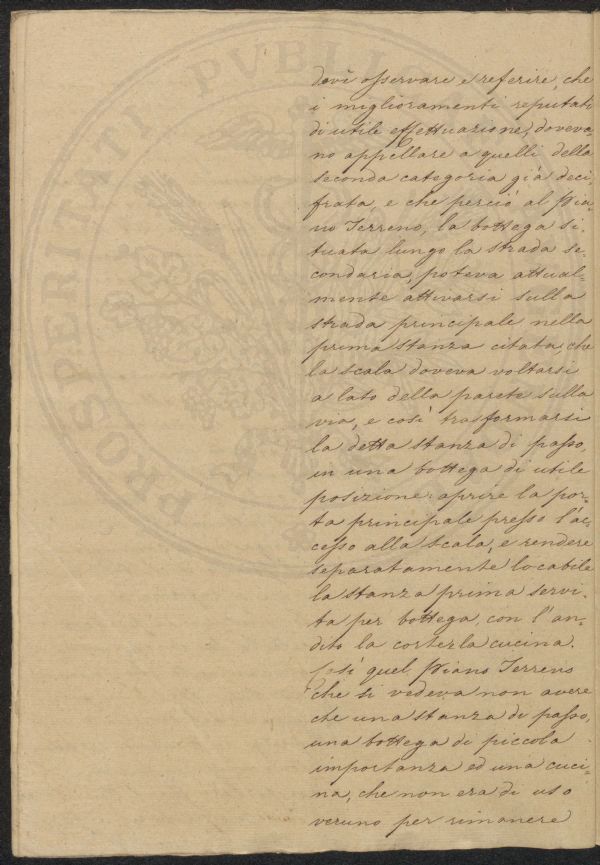 dovè osservare e referire, che
i miglioramenti reputati
di utile effettuazione, doveva
no appellare a quelli della
seconda categoria già deci-
frata, e che perciò al Pia-
no Terreno, la bottega si-
tuata lungo la strada se-
condaria, poteva attual-
mente attivarsi sulla
strada principale nella
prima stanza citata, che
la scala doveva voltarsi
a lato della parete sulla
via, e così trasformarsi
la detta stanza di passo,
in una bottega di utile
posizione: aprire la por-
ta principale presso l'ac-
cesso alla scala, e rendere
separatamente locabile
la stanza prima servi-
ta per bottega, con l'an-
dito la corte e la cucina.
Così quel Piano Terreno
che si vedeva non avere
che una stanza di passo,
una bottega di piccola
importanza ed una cuci-
na, che non era di uso
veruno per rimanere
PROSPERITATI PVBLI